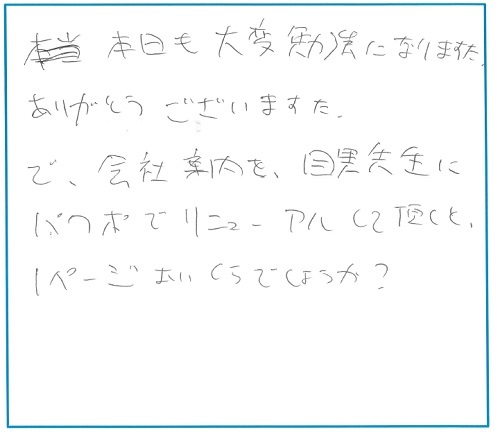 本日も大変勉強になりました。
ありがとうございますた。
で、会社案内を、目黒先生に
パワポでリニューアルして頂くと、
1ページおいくらでしょうか?